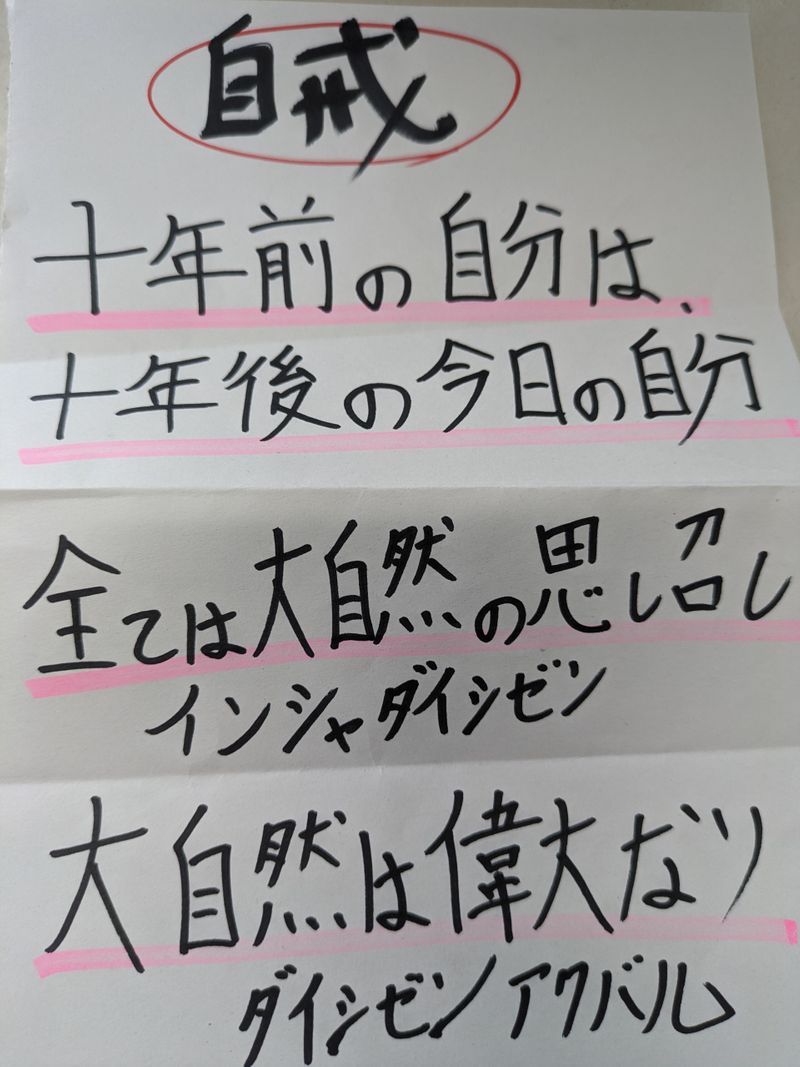 自戒
十年前の自分は、
十年後の今日の自分
全ては大自然の思し召し
インシャダイシゼン
大自然は偉大なり
ダイシゼンアクバル